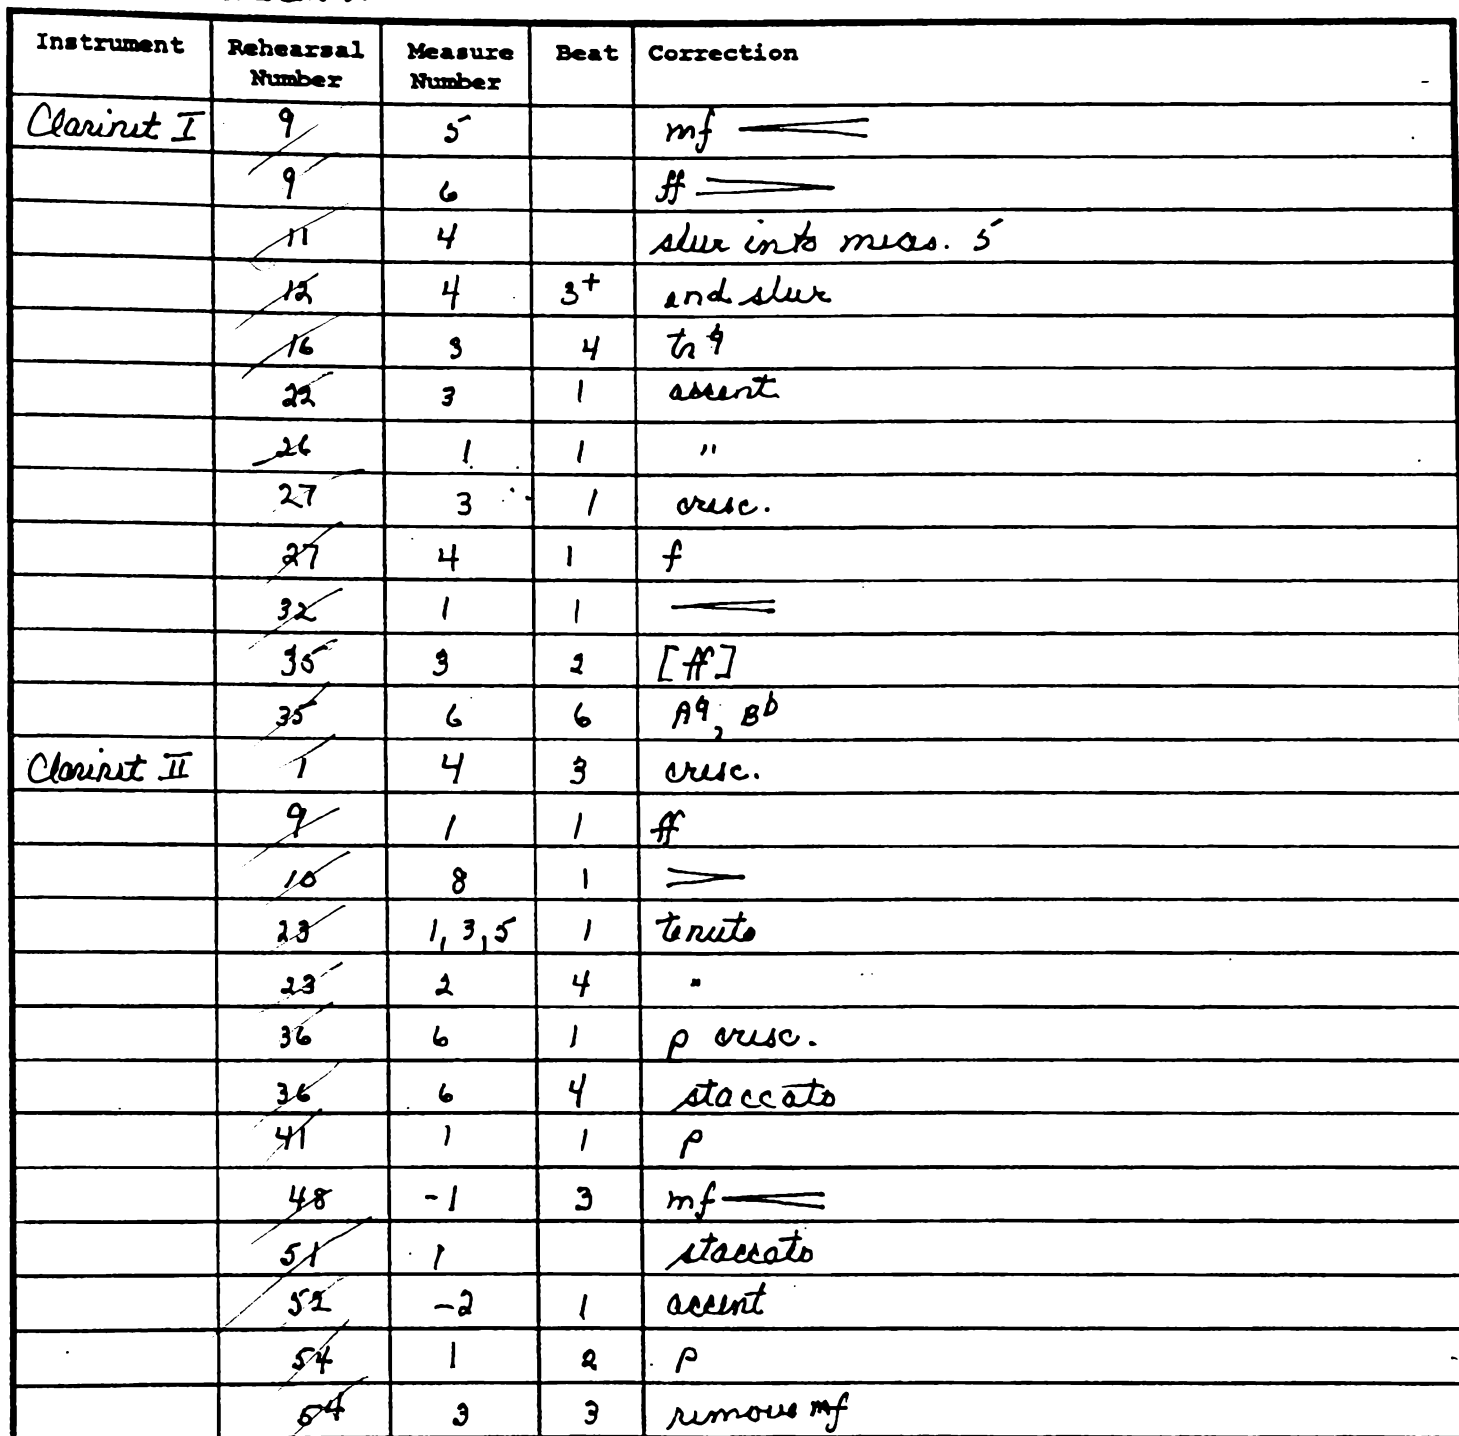 Instrument Rehearsal Number Measure Number Beat Correction
Clarinet I 9 5 mf
9 6 ff
11 4 slur into meas. 5
12 4 3+ end slur
16 3 4 tr ♮
22 3 1 accent
26 1 1 "
27 3 1 cresc.
27 4 1 f
32 1 1
35 3 2 [ff]
35 6 6 A♮, B♭
Clarinet II 1 4 3 cresc.
9 1 1 ff
10 8 1
23 1, 3, 5 1 tenuto
23 2 4 "
36 6 1 p cresc.
36 6 4 staccato
41 1 1 p
48 -1 3 mf
51 1 staccato
52 -2 1 accent
54 1 2 p
54 3 3 remove mf